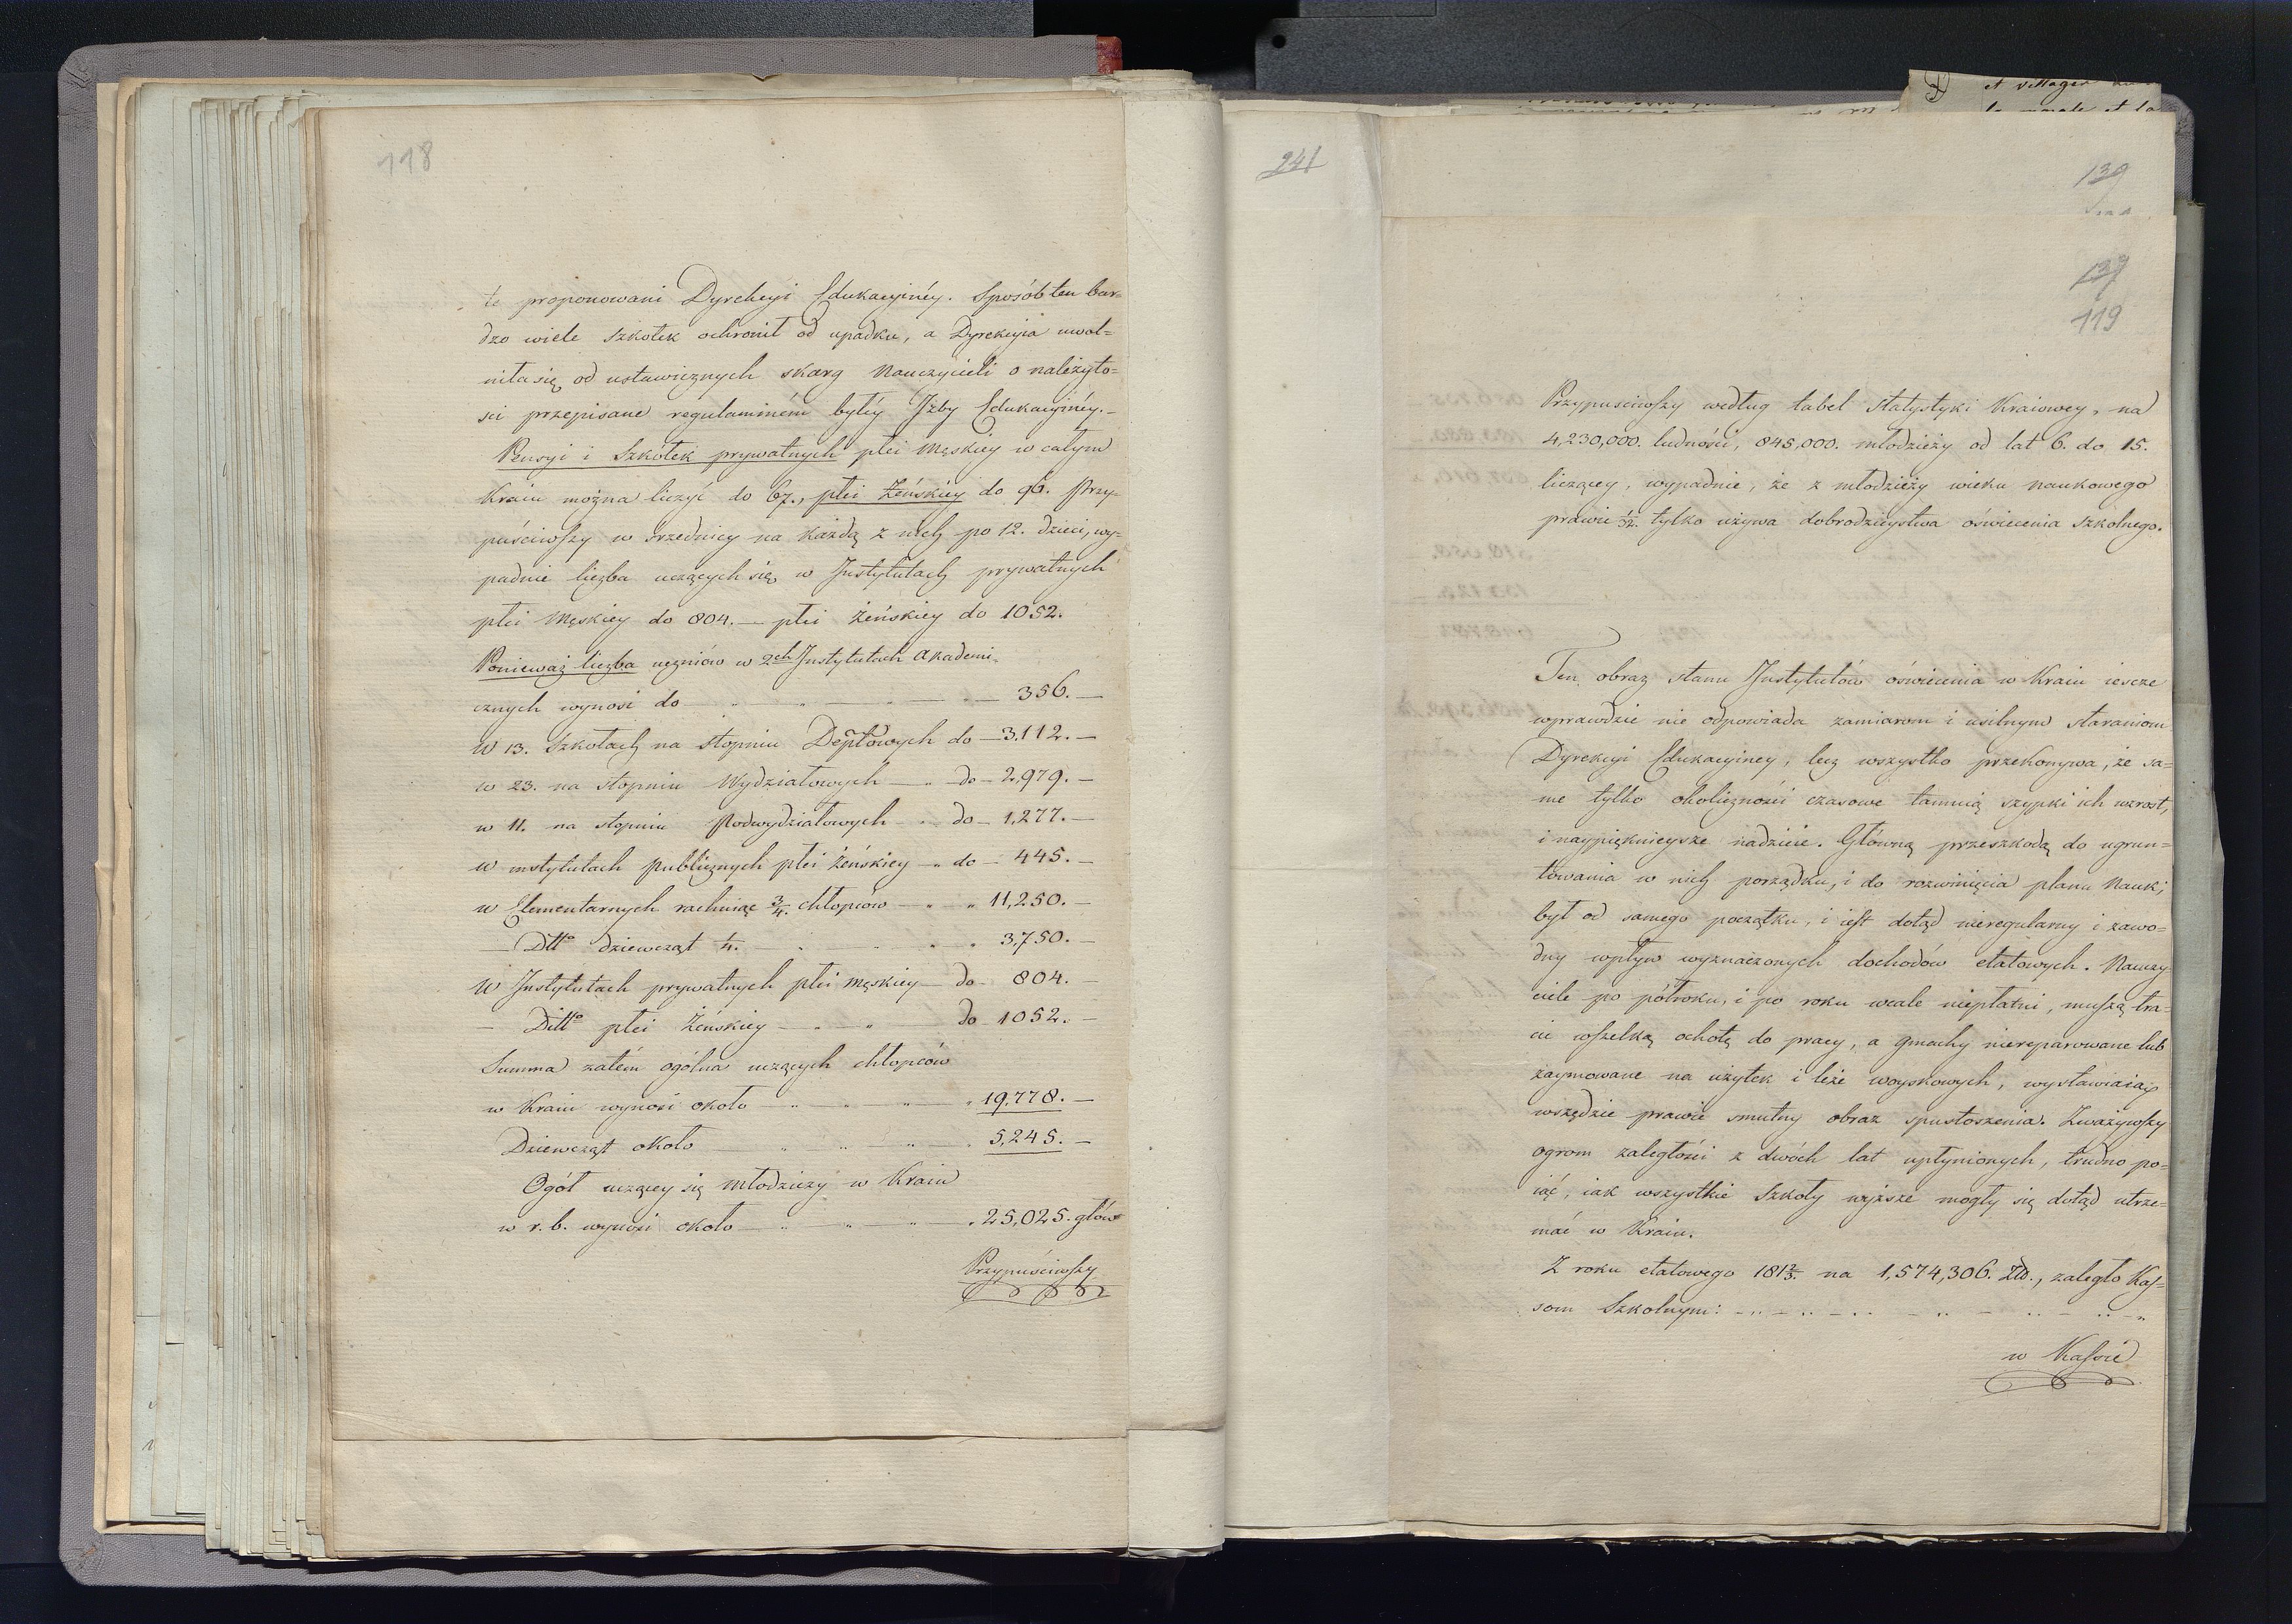 118
te proponowani Dyrekcyi Edukacyinéy. Sposób ten bar=
dzo wiele szkołek ochronił od upadku, a Dyrekcyia uwol=
niła się od ustawicznych skarg Nauczycieli o należyto=
sci przepisane regulaminém byłéy Jzby Edukacyinéy.-
Pensyi i Szkołek prywatnych płci Męskiey w całym
Kraiu można liczyć do 67., płci Żeńskiey do 96. Przy=
puściwszy w srzednicy na każdą z nich po 12. dzieci, wy=
padnie liczba uczących się w Jnstytutach prywatnych
płci Męskiey do 804. — płci żeńskiey do 1052.
Ponieważ liczba uczniów w 2ch Jnstytutach Akademi=
cznych wynosi do — 356. —
W 13. Szkołach na stopniu Deptowych do — 3.112. —
w 23. na stopniu Wydziałowych — do — 2,979. —
w 11. na stopniu Podwydziałowych — do — 1,277. —
w instytutach publicznych płci żeńskiey — do — 445. —
w Elementarnych rachuiąc 3/4. chłopców — 11,250. —
— Ditto dziewcząt 1/4. — 3,750. —
W Jnstytutach prywatnych płci Męskiey — do 804. —
— Ditto płci Żeńskiey — do — 1052. —
Summa zatém ogólna uczących chłopców
w Kraiu wynosi około — 19.778. —
Dziewcząt około — 5,245. —
Ogół uczącey się Młodzieży w Kraiu
w r. b. wynosi około — 25,025. głów
Przypuściwszy
241
139
139
119
Przypusciwszy według tabel Statystyki Kraiowey, na
4,230,000. ludności, 845,000. młodzieży od lat 6. do 15.
liczącey, wypadnie, że z młodzieży wieku naukowego
prawie 1/32. tylko używa dobrodzieystwa oświecenia szkolnego.
Ten obraz stanu Jnstytutów oświecenia w Kraiu iescze
wprawdzie nie odpowiada zamiarom i usilnym staraniom
Dyrekcyi Edukacyiney, lecz wszystko przekonywa, że sa=
me tylko okoliczności czasowe tamuią szypki ich wzrost,
i naypięknieysze nadzieie. Główną przeszkodą do ugrun=
towania w nich porządku, i do rozwinięcia planu Nauk,
był od samego początku, i iest dotąd nieregularny i zawo=
dny wpływ wyznaczonych dochodów etatowych. Nauczy=
ciele po półroku, i po roku wcale niepłatni, muszą tra=
cić wszelką ochotę do pracy, a gmachy niereparowane lub
zaymowane na użytek i leże woyskowych, wystawiaią
wszędzie prawie smutny obraz spustoszenia. Zważywszy
ogrom zaległości z dwóch lat upłynionych, trudno po=
iąć, iak wszystkie Szkoły wyższe mogły się dotąd utrzy=
mać w Kraiu.
Z roku etatowego 1812/3. na 1,574,306. Złt., zaległo Kas=
som Szkolnym:
w Kassie